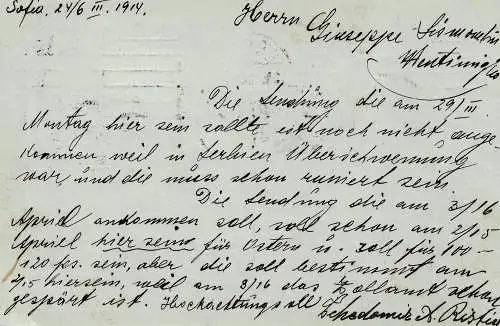 Sofia, 24/6 III. 1914.
Herrn
Giuseppe
Die Sendung die am 29/III
Montag hier sein sollte ist noch nicht ange-
kommen weil in Serbien Überschwemung
war, und die muss schon runiert sein.
Die Sendung die am 3/16
Apriel ankommen soll, soll schon am 2/15
Apriel hier sein für Ostern u. soll für 100-
120 frs. sein, aber die soll bestimmt am
2/15 hiersein, weil am 3/16 das Zollamt schon
gespärt ist. Hochachtungsvoll